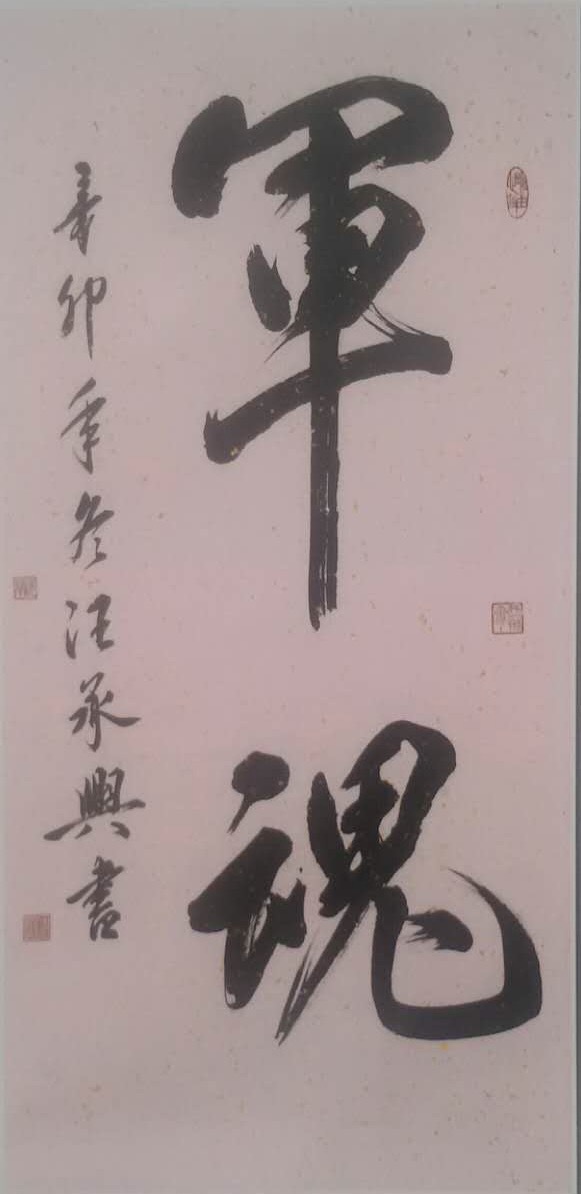 軍魂
辛卯年冬汪永興書